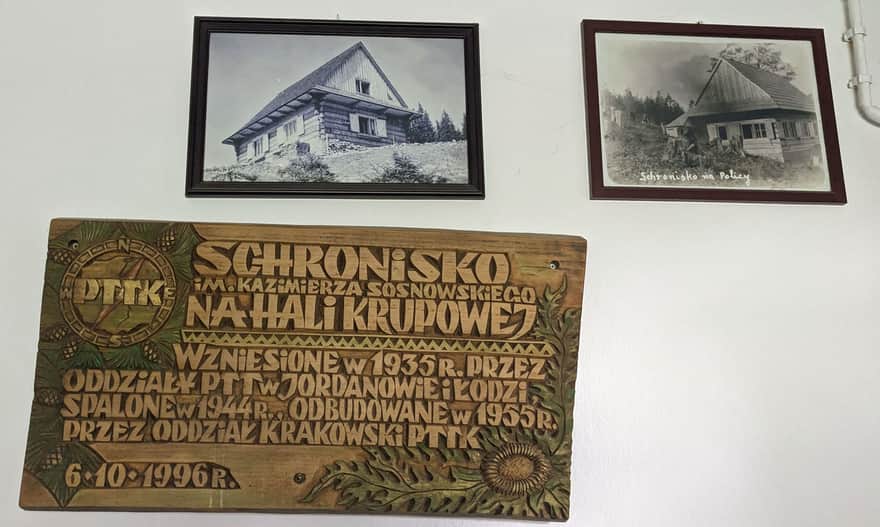 Schronisko na Policy
N
PTTK
W
E
S
SCHRONiSKO
iM. KAZiMiERZA SOSNOWSKiEGO
NA HALi KRUPOWEJ
WZNiESiONE W 1935 R. PRZEZ
ODDZiAŁY PTT W JORDANOWiE i ŁODZi
SPALONE W 1944 R., ODBUDOWANE W 1955 R.
PRZEZ ODDZiAŁ KRAKOWSKi PTTK
6•10•1996 R.